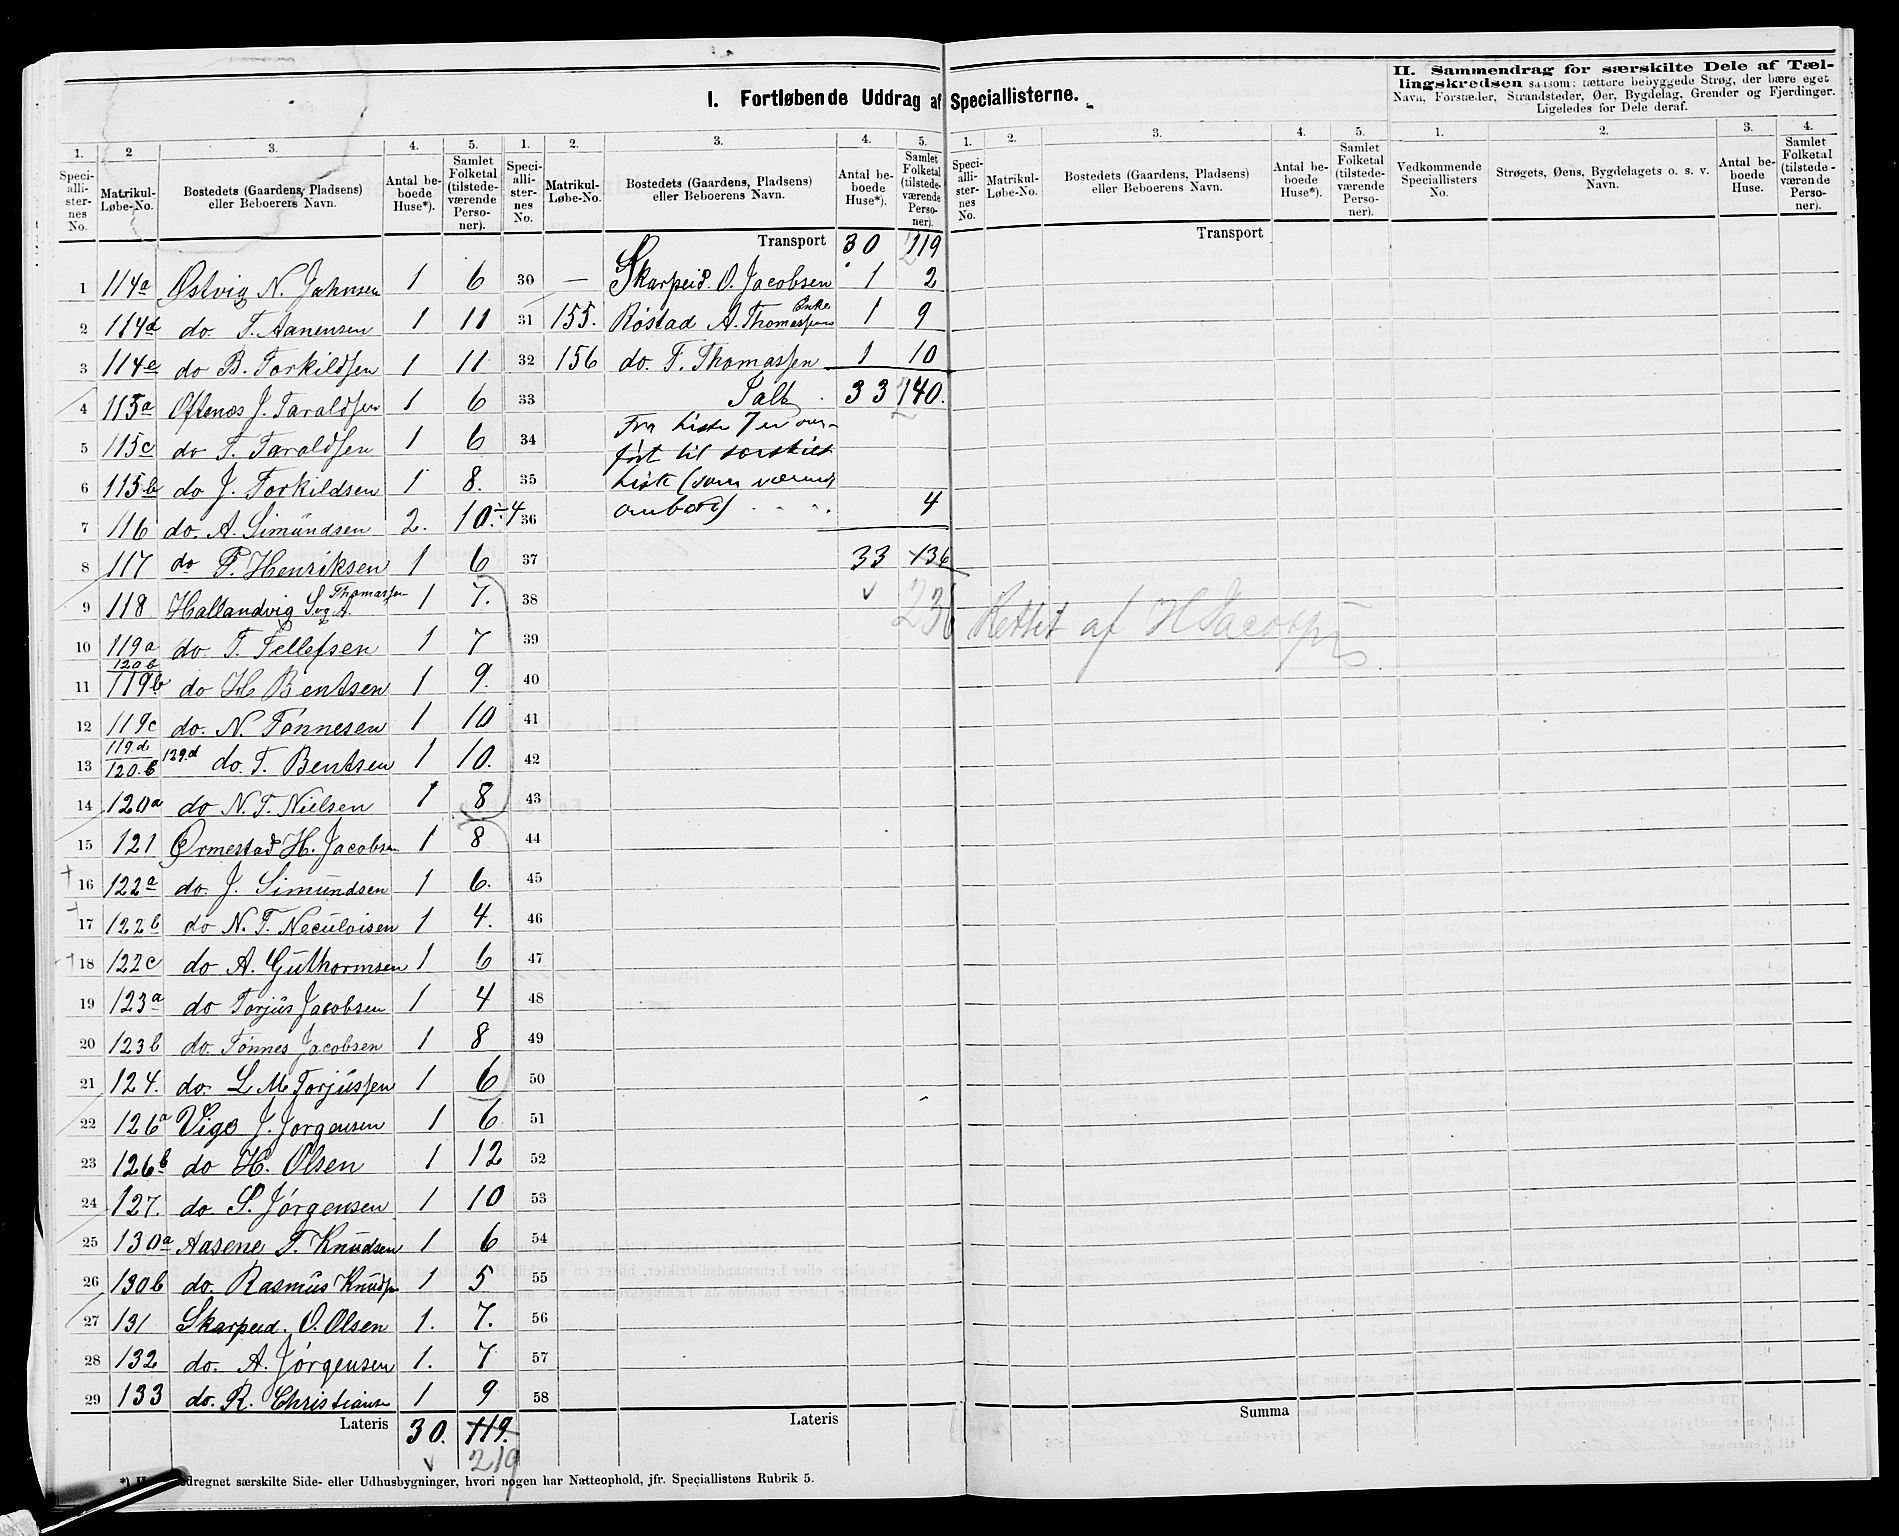 I. Fortløbende Uddrag af Speciallisterne.
II. Sammendrag for særskilte Dele af Tæl-
lingskredsen saasom: tættere bebyggede Strøg, der bære eget
Navn, Forstæder, Strandsteder, Øer, Bygdelag, Grender og Fjerdinger.
Ligeledes for Dele deraf.
1. 2 3. 4. 5.
Speciallisternes No. Matrikul-Løbe-No. Bostedets (Gaardens, Pladsens) eller Beboerens Navn. Antal beboede Huse*). Samlet Folketal (tilstedeværende Personer).
1 114a Østvig N. Jahnsen 1 6
2 114d do T. Aanensen 1 11
3 114e do B. Torkildsen 1 11
4 115a Oftenes J. Taraldsen 1 6
5 115c do T. Taraldsen 1 6
6 115b do J. Torkildsen 1 8.
7 116 do. A. Simundsen 2. 10. ÷ 4
8 117 do T. Henriksen 1 6
9 118 Hallandvig Svg A. Thomassen 1 7.
10 119a do T. Tellefsen 1 7
11 120b 119b do H Bentsen 1 9.
12 119c do. N. Tönnesen 1 10
13 119.d 120.b 129.d do. T. Bentsen 1 10.
14 120a do N. T. Nielsen 1 8
15 121 Ormestad H. Jacobsen 1 8
16 122a do. J. Simundsen 1 6.
17 122b do N. T. Neculvisen 1 4.
18 122c do A. Guthormsen 1 6
19 123a do Torjus Jacobsen 1 4
20 123b do. Tönnes Jacobsen 1 8
21 124. do. L M Torjussen 1 6
22 126a Vige J. Jorgensen 1 6
23 126b do H. Olsen 1 12
24 127. do. S. Jörgensen 1 10
25 130a Aasene T. Knudsen 1 6
26 130b do. Rasmus Knudsen 1 5
27 131 Skarpeid. O. Olsen 1. 7.
28 132 do. A. Jörgensen 1. 7
29 133 do. R. Christians 1 9
Lateris 30. 119.
219
*) dregnet særskilte Side- eller Udhusbygninger, hvori nogen har Natteophold, jfr. Speciallistens Rubrik 5.
1. 2. 3. 4. 5.
Speciallisternes No. Matrikul-Løbe-No. Bostedets (Gaardens, Pladsens) eller Beboerens Navn. Antal beboede Huse*). Samlet Folketal (tilstedeværende Personer).
Transport 30 219
30 — Skarpeid. O. Jacobsen 1 2
31 155. Röstad A. Thomassens Enke 1 9
32 156 do. T. Thomassen 1 10
33 Talt 33 240.
34 Fra Liste 7 er over-
fört til særskilt
35 Liste (som værende
36 ombord) 4
37 33 136
38 236
39
40
41
42
43
44
45
46
47
48
49
50
51
52
53
54
55
56
57
58
Lateris
1. 2. 3. 4. 5.
Speciallisternes No. Matrikul-Løbe-No. Bostedets (Gaardens, Pladsens) eller Beboerens Navn. Antal beboede Huse*). Samlet Folketal (tilstedeværende Personer).
Transport
Rettet af H Jacobsen
Summa
1. 2. 3. 4.
Vedkommende Speciallisters No. Strøgets, Øens, Bygdelagets o. s. v. Navn. Antal beboede Huse. Samlet Folketal (tilstedeværende Personer).